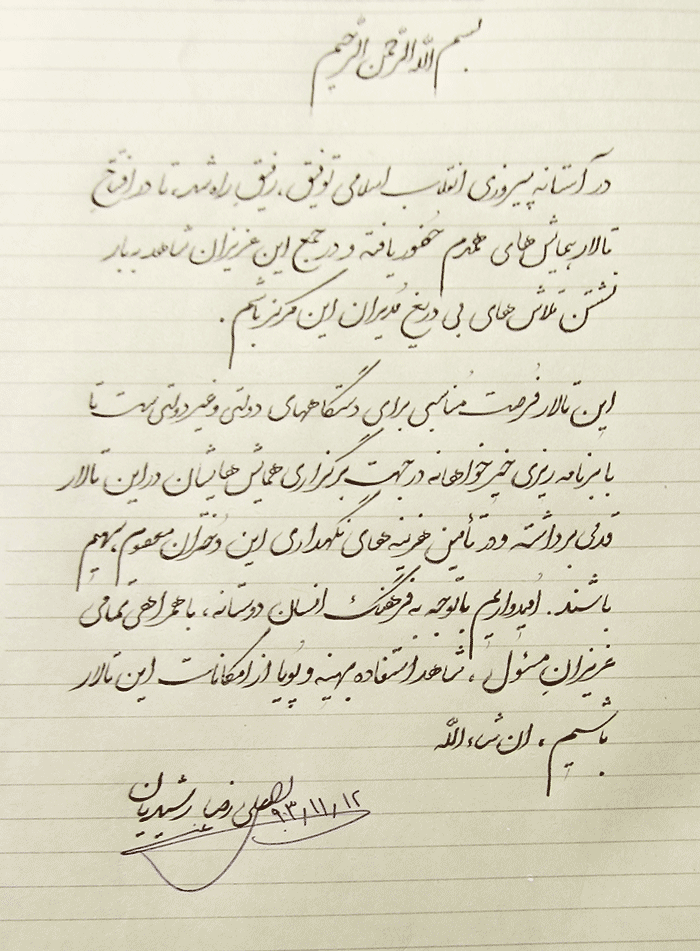 بسم الله الرحمن الرحیم
در آستانه پیروزی انقلاب اسلامی توفیق، رفیق راه شد، تا در افتتاح
تالار همایش‌های همدم حضور یافته و در جمع این عزیزان شاهد ببار
نشستن تلاش‌های بی دریغ مُدیران این مرکز باشم.
این تالار فُرصت مُناسبی برای دستگاههای دولتی و غیر دولتی ست تا
با برنامه ریزی خیرخواهانه در جهت برگزاری همایش هایشان در این تالار
قدمی برداشته و در تأمین هزینه‌های نگهداری این دُختران معصوم سهیم
باشند. اُمیدواریم با توجه به فرهنگ انسان دوستانه، با همراهی تمامی
عزیزانِ مسئول، شاهد استفاده بهینه و پُویا از امکانات این تالار
باشیم، ان شاءالله
علی رضا رشیدیان
۹۳/۱۱/۱۲